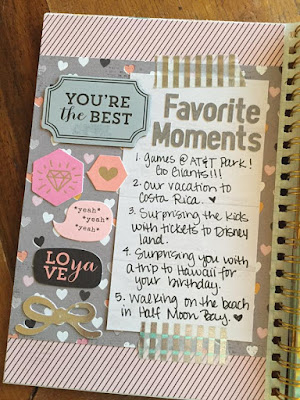 YOU'RE
the BEST
*yeah*
*yeah*
*yeah*
LO ya
VE
Favorite
Moments
1. games @ AT&T Park!
Go Giants!!!
2. our vacation to
Costa Rica. ♥
3. Surprising the kids
with tickets to Disney
land.
4. Surprising you with
a trip to Hawaii for
your birthday.
5. Walking on the beach
in Half Moon Bay. ♥